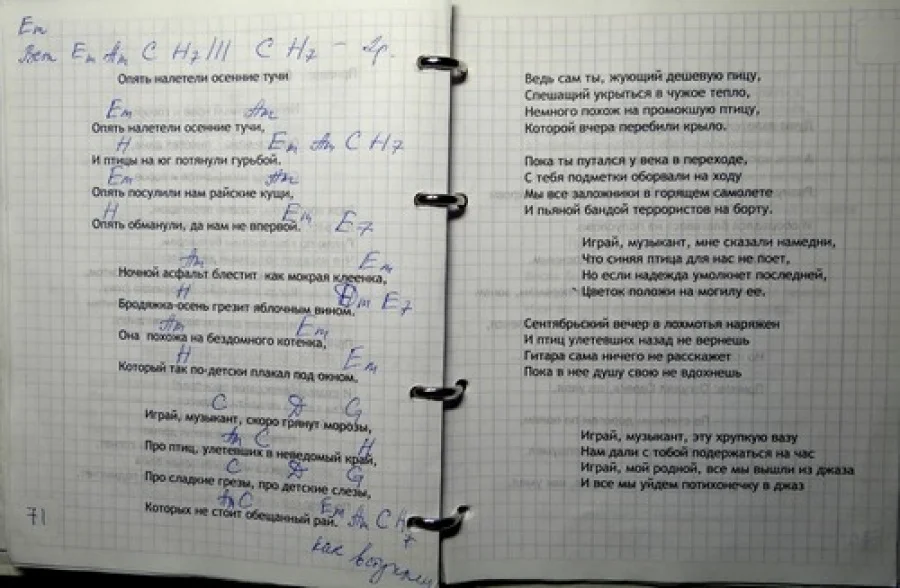 Em
Em Am C H7 /// C H7 - 2р.
Опять налетели осенние тучи
Em Am
Опять налетели осенние тучи,
H Em Am C H7
И птицы на юг потянули гурьбой.
Em Am
Опять посулили нам райские кущи,
H Em E7
Опять обманули, да нам не впервой.
Am Em
Ночной асфальт блестит как мокрая клеенка,
H Em E7
Бродяжка-осень грезит яблочным вином.
Am Em
Она похожа на бездомного котенка,
H Em
Который так по-детски плакал под окном.
C D G
Играй, музыкант, скоро грянут морозы,
Am C H
Про птиц, улетевших в неведомый край,
C D G
Про сладкие грезы, про детские слезы,
Am C Em Am C H7
Которых не стоит обещанный рай.
71
как вступлен
Ведь сам ты, жующий дешевую пицу,
Спешащий укрыться в чужое тепло,
Немного похож на промокшую птицу,
Которой вчера перебили крыло.
Пока ты путался у века в переходе,
С тебя подметки оборвали на ходу
Мы все заложники в горящем самолете
И пьяной бандой террористов на борту.
Играй, музыкант, мне сказали намедни,
Что синяя птица для нас не поет,
Но если надежда умолкнет последней,
Цветок положи на могилу ее.
Сентябрьский вечер в лохмотья наряжен
И птиц улетевших назад не вернешь
Гитара сама ничего не расскажет
Пока в нее душу свою не вдохнешь
Играй, музыкант, эту хрупкую вазу
Нам дали с тобой подержаться на час
Играй, мой родной, все мы вышли из джаза
И все мы уйдем потихонечку в джаз